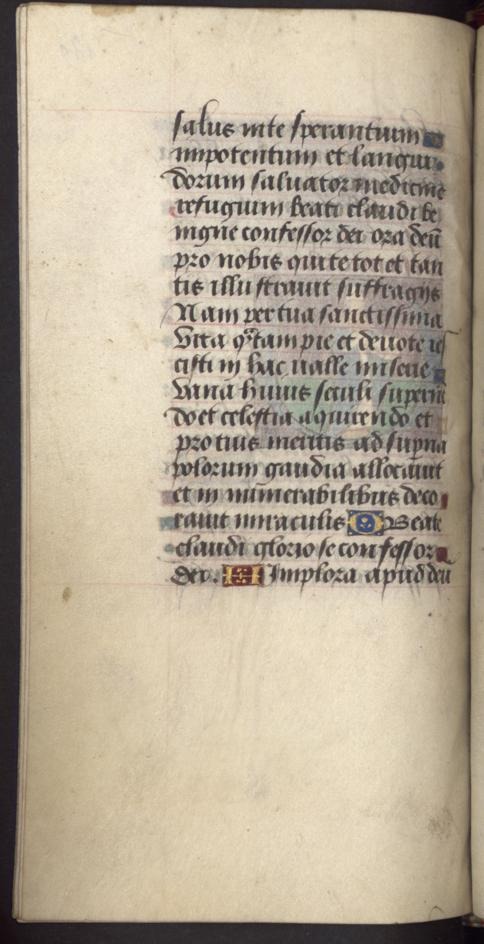 salus in te sperantium
impotentum et langui
dorum saluator medicine
refugium beati claudi be
nigne confessor dei ora deū
pro nobis qui te tot et tan
tis illustrauit suffragijs
Nam per tua sanctissima
vita qᵃ tam pie et deuote
cisti in hac ualle miserie
vana huius seculi
do et celestia aquirendo et
pro tuis meritis ad sup̄na
polorum gaudia allocauit
et in nūmerabilibus deco
rauit miraculis Beate
claudi gloriose confessor
dei. Implora apud deū